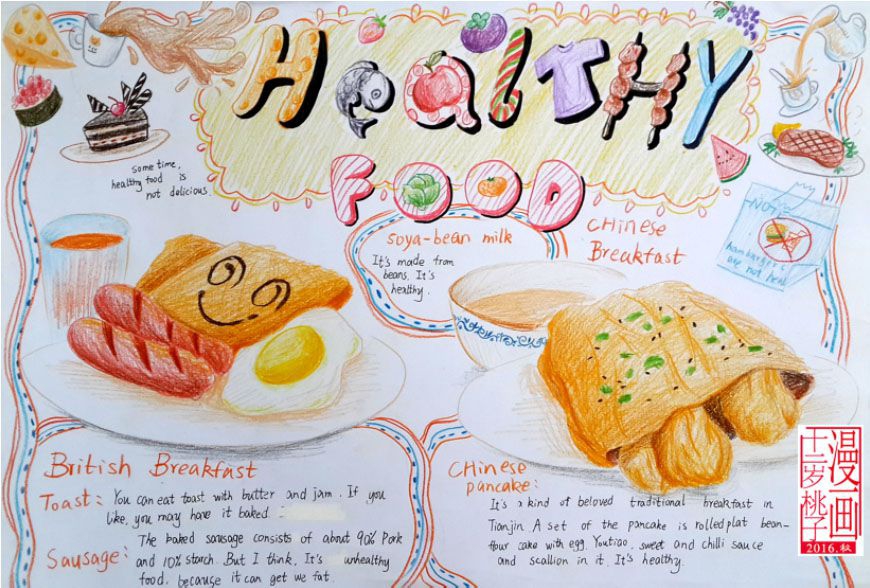 HeAlTHY
FOOD
some time,
healthy food is
not delicious.
soya-bean milk
It's made from
beans. It's
healthy.
Chinese
Breakfast
NOTE
hamburgers
are not heal
British Breakfast
Toast: You can eat toast with butter and jam. If you
like, you may have it baked.
Sausage: The baked sausage consists of about 90% Pork
and 10% starch. But I think, It's unhealthy
food, because it can get we fat.
Chinese
pancake:
It's a kind of beloved traditional breakfast in
Tianjin. A set of the pancake is rolled plat bean-
flour cake with egg, Youtiao, sweet and chilli sauce
and scallion in it. It's healthy.
漫画
十二岁桃子
2016.秋